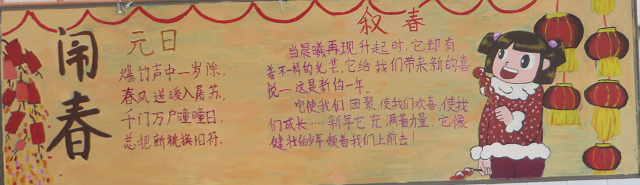 闹春
元日
爆竹声中一岁除，
春风送暖入屠苏，
千门万户曈曈日，
总把新桃换旧符。
叙春
当晨曦再现升起时，它却有
着不一样的光芒，它给我们带来新的喜
悦——这是新的一年。
它使我们团聚，使我们欢喜，使我
们成长……新年它充满着力量，它像
健壮的少年领着我们上前去！